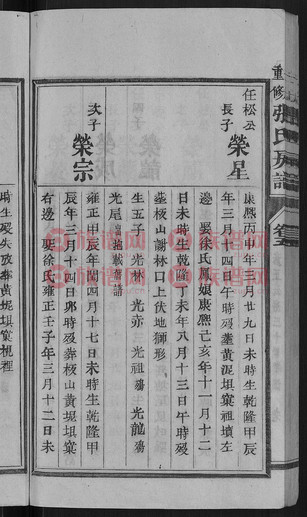 重修張氏族譜
任松公
長子
榮星
康熙丙申年三月廿九日未時生乾隆甲辰
年三月十四日午時歿葬黄泥垻窠祖墳左
邊 娶徐氏鳳娘康熙己亥年十一月十二
日未時生乾隆丁未年八月十三日午時歿
葬板山謝林口上伏地獅形
生五子 光林 光亦 光祖殤 光龍殤
光尾
次子
榮宗
雍正甲辰年閏四月十七日未時生乾隆甲
辰年月十四日卯時歿葬板山黄坭垻窠
右邊 娶徐氏雍正壬子年三月十二日未
時生歿失攷葬黄坭垻窠